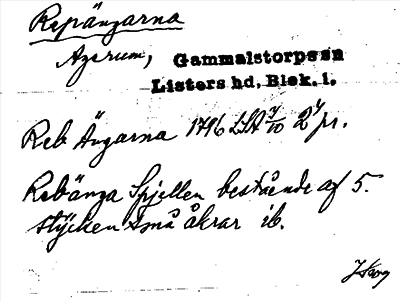 Repängarna
Agerum, Gammalstorps sn
Listers hd, Blek. l.
Reb Ängarna 1796 LSA 7/10 2 4 pr.
Rebänga Spjellen bestående af 5.
stycken små åkrar ib.